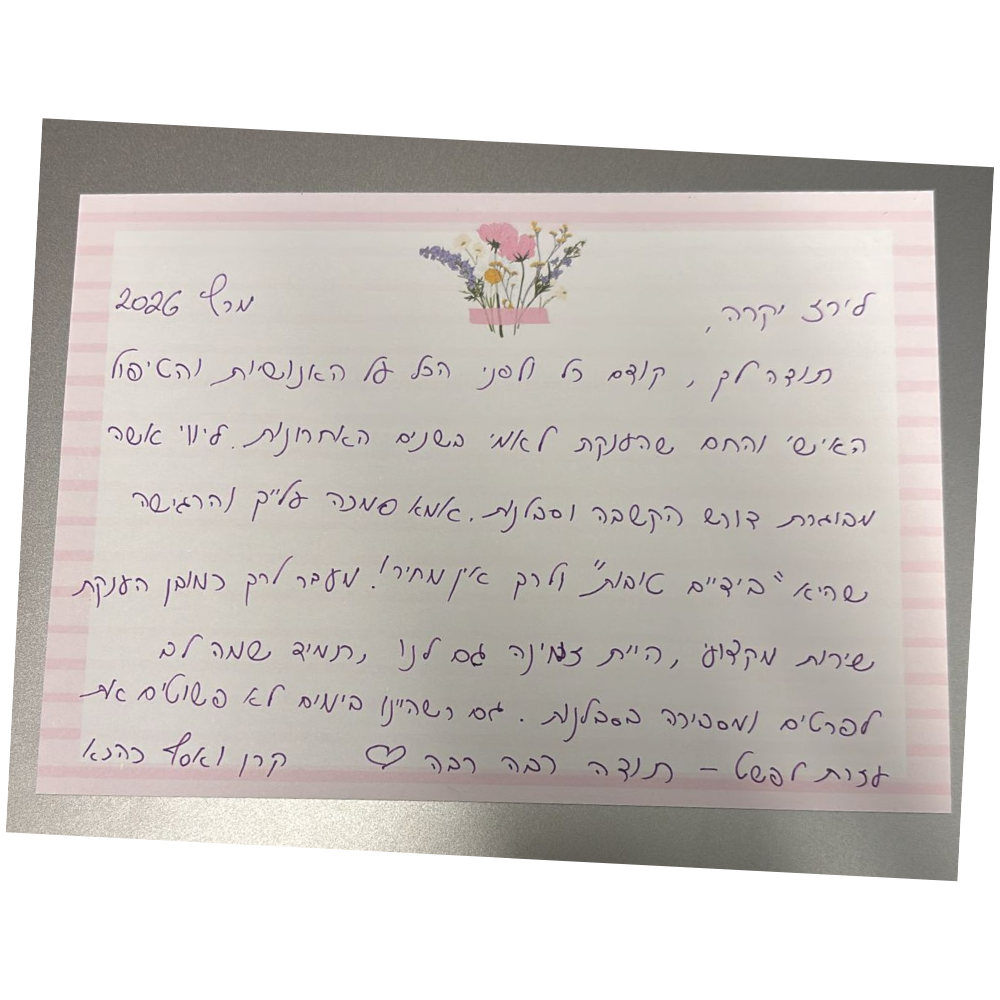 לירז יקרה, מרץ 2026
תודה לך, קודם כל ולפני הכל על האנושיות והטיפול
האישי והחם שהענקת לאמי בשנים האחרונות. ליווי אשה
מבוגרת דורש הקשבה וסבלנות. אמא סמכה עלייך והרגישה
שהיא "בידיים טובות" ולכך אין מחיר! מעבר לכך כמובן הענקת
שירות מקצועי, היית זמינה גם לנו, תמיד שמה לב
לפרטים ומסבירה בסבלנות. גם כשהיינו בימים לא פשוטים את
עזרת לפשט – תודה רבה רבה ♡ קרן ואסף כהנא